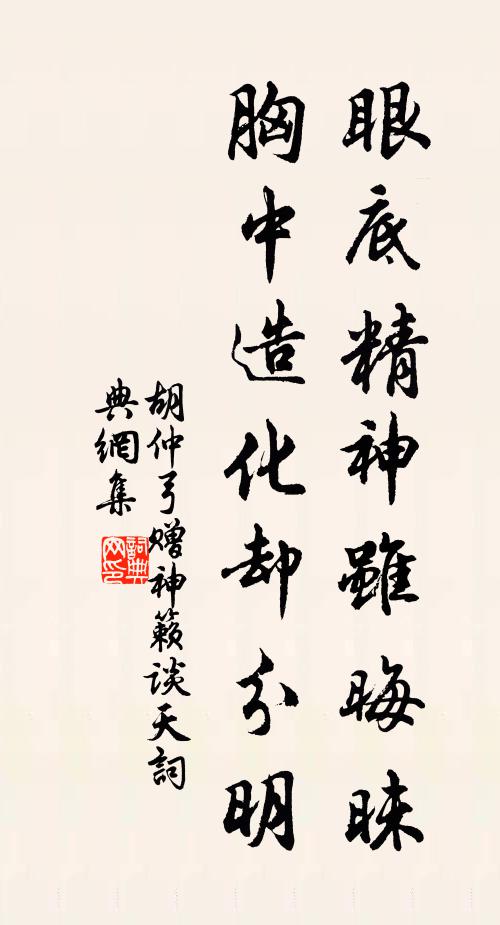 眼底精神雖晦昧
胸中造化却分明
胡仲弓贈神籟談天詞
典網集
詞典网印